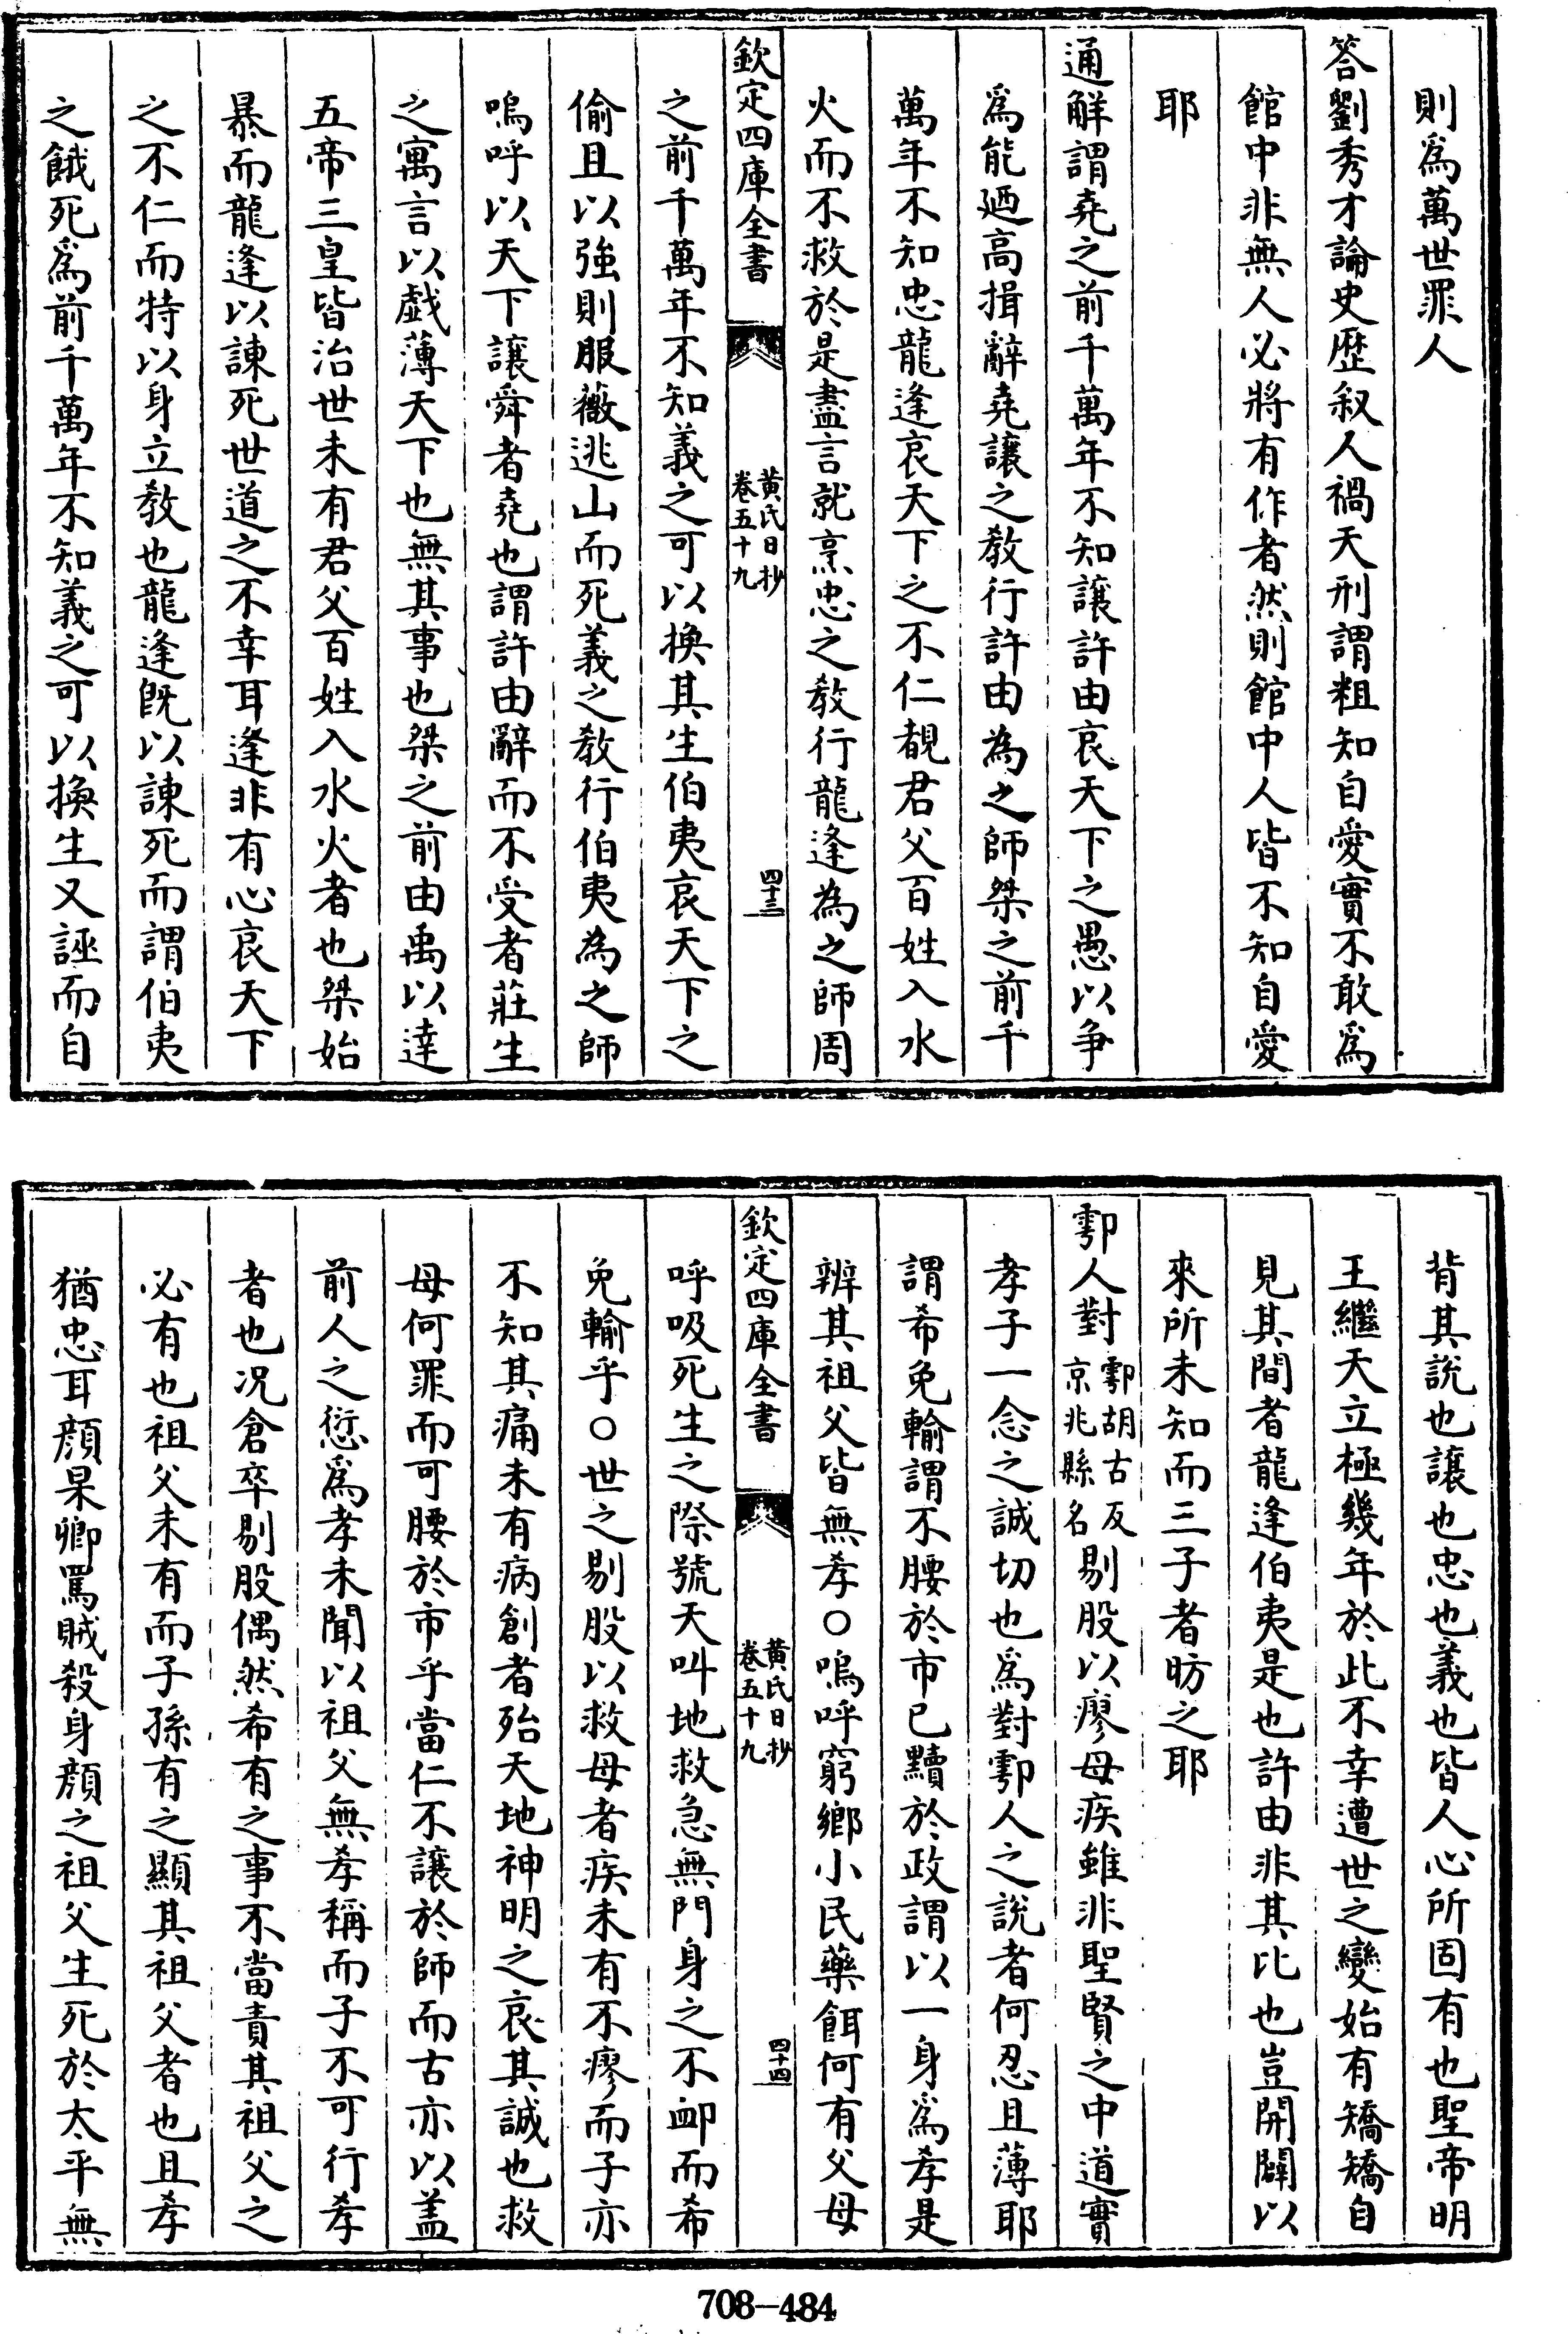 則爲萬世罪人
答劉秀才論史歴叙人禍天刑謂粗知自愛實不敢爲
館中非無人必將有作者然則館中人皆不知自愛
耶
通解謂堯之前千萬年不知讓許由哀天下之愚以爭
爲能廼高揖辭堯讓之教行許由為之師桀之前千
萬年不知忠龍逢哀天下之不仁覩君父百姓入水
火而不救於是盡言就烹忠之教行龍逢為之師周
欽定四庫全書
黄氏日抄
卷五十九
四十三
之前千萬年不知義之可以換其生伯夷哀天下之
偷且以強則服薇逃山而死義之教行伯夷為之師
嗚呼以天下讓舜者堯也謂許由辭而不受者莊生
之寓言以戲薄天下也無其事也桀之前由禹以逹
五帝三皇皆治世未有君父百姓入水火者也桀始
暴而龍逢以諌死世道之不幸耳逢非有心哀天下
之不仁而特以身立教也龍逢既以諌死而謂伯夷
之餓死爲前千萬年不知義之可以換生又誣而自
背其說也讓也忠也義也皆人心所固有也聖帝明
王繼天立極幾年於此不幸遭世之變始有矯矯自
見其間者龍逢伯夷是也許由非其比也豈開闢以
來所未知而三子者昉之耶
鄠人對
鄠胡古反
京兆縣名
剔股以瘳母疾雖非聖賢之中道實
孝子一念之誠切也爲對鄠人之說者何忍且薄耶
謂希免輸謂不腰於市已黷於政謂以一身爲孝是
辨其祖父皆無孝○嗚呼窮鄉小民藥餌何有父母
欽定四庫全書
黄氏日抄
卷五十九
四十四
呼吸死生之際號天叫地救急無門身之不卹而希
免輸乎○世之剔股以救母者疾未有不瘳而子亦
不知其痛未有病創者殆天地神明之哀其誠也救
母何罪而可腰於市乎當仁不讓於師而古亦以蓋
前人之愆爲孝未聞以祖父無孝稱而子不可行孝
者也况倉卒剔股偶然希有之事不當責其祖父之
必有也祖父未有而子孫有之顯其祖父者也且孝
猶忠耳顔杲卿罵賊殺身顔之祖父生死於太平無
708—484